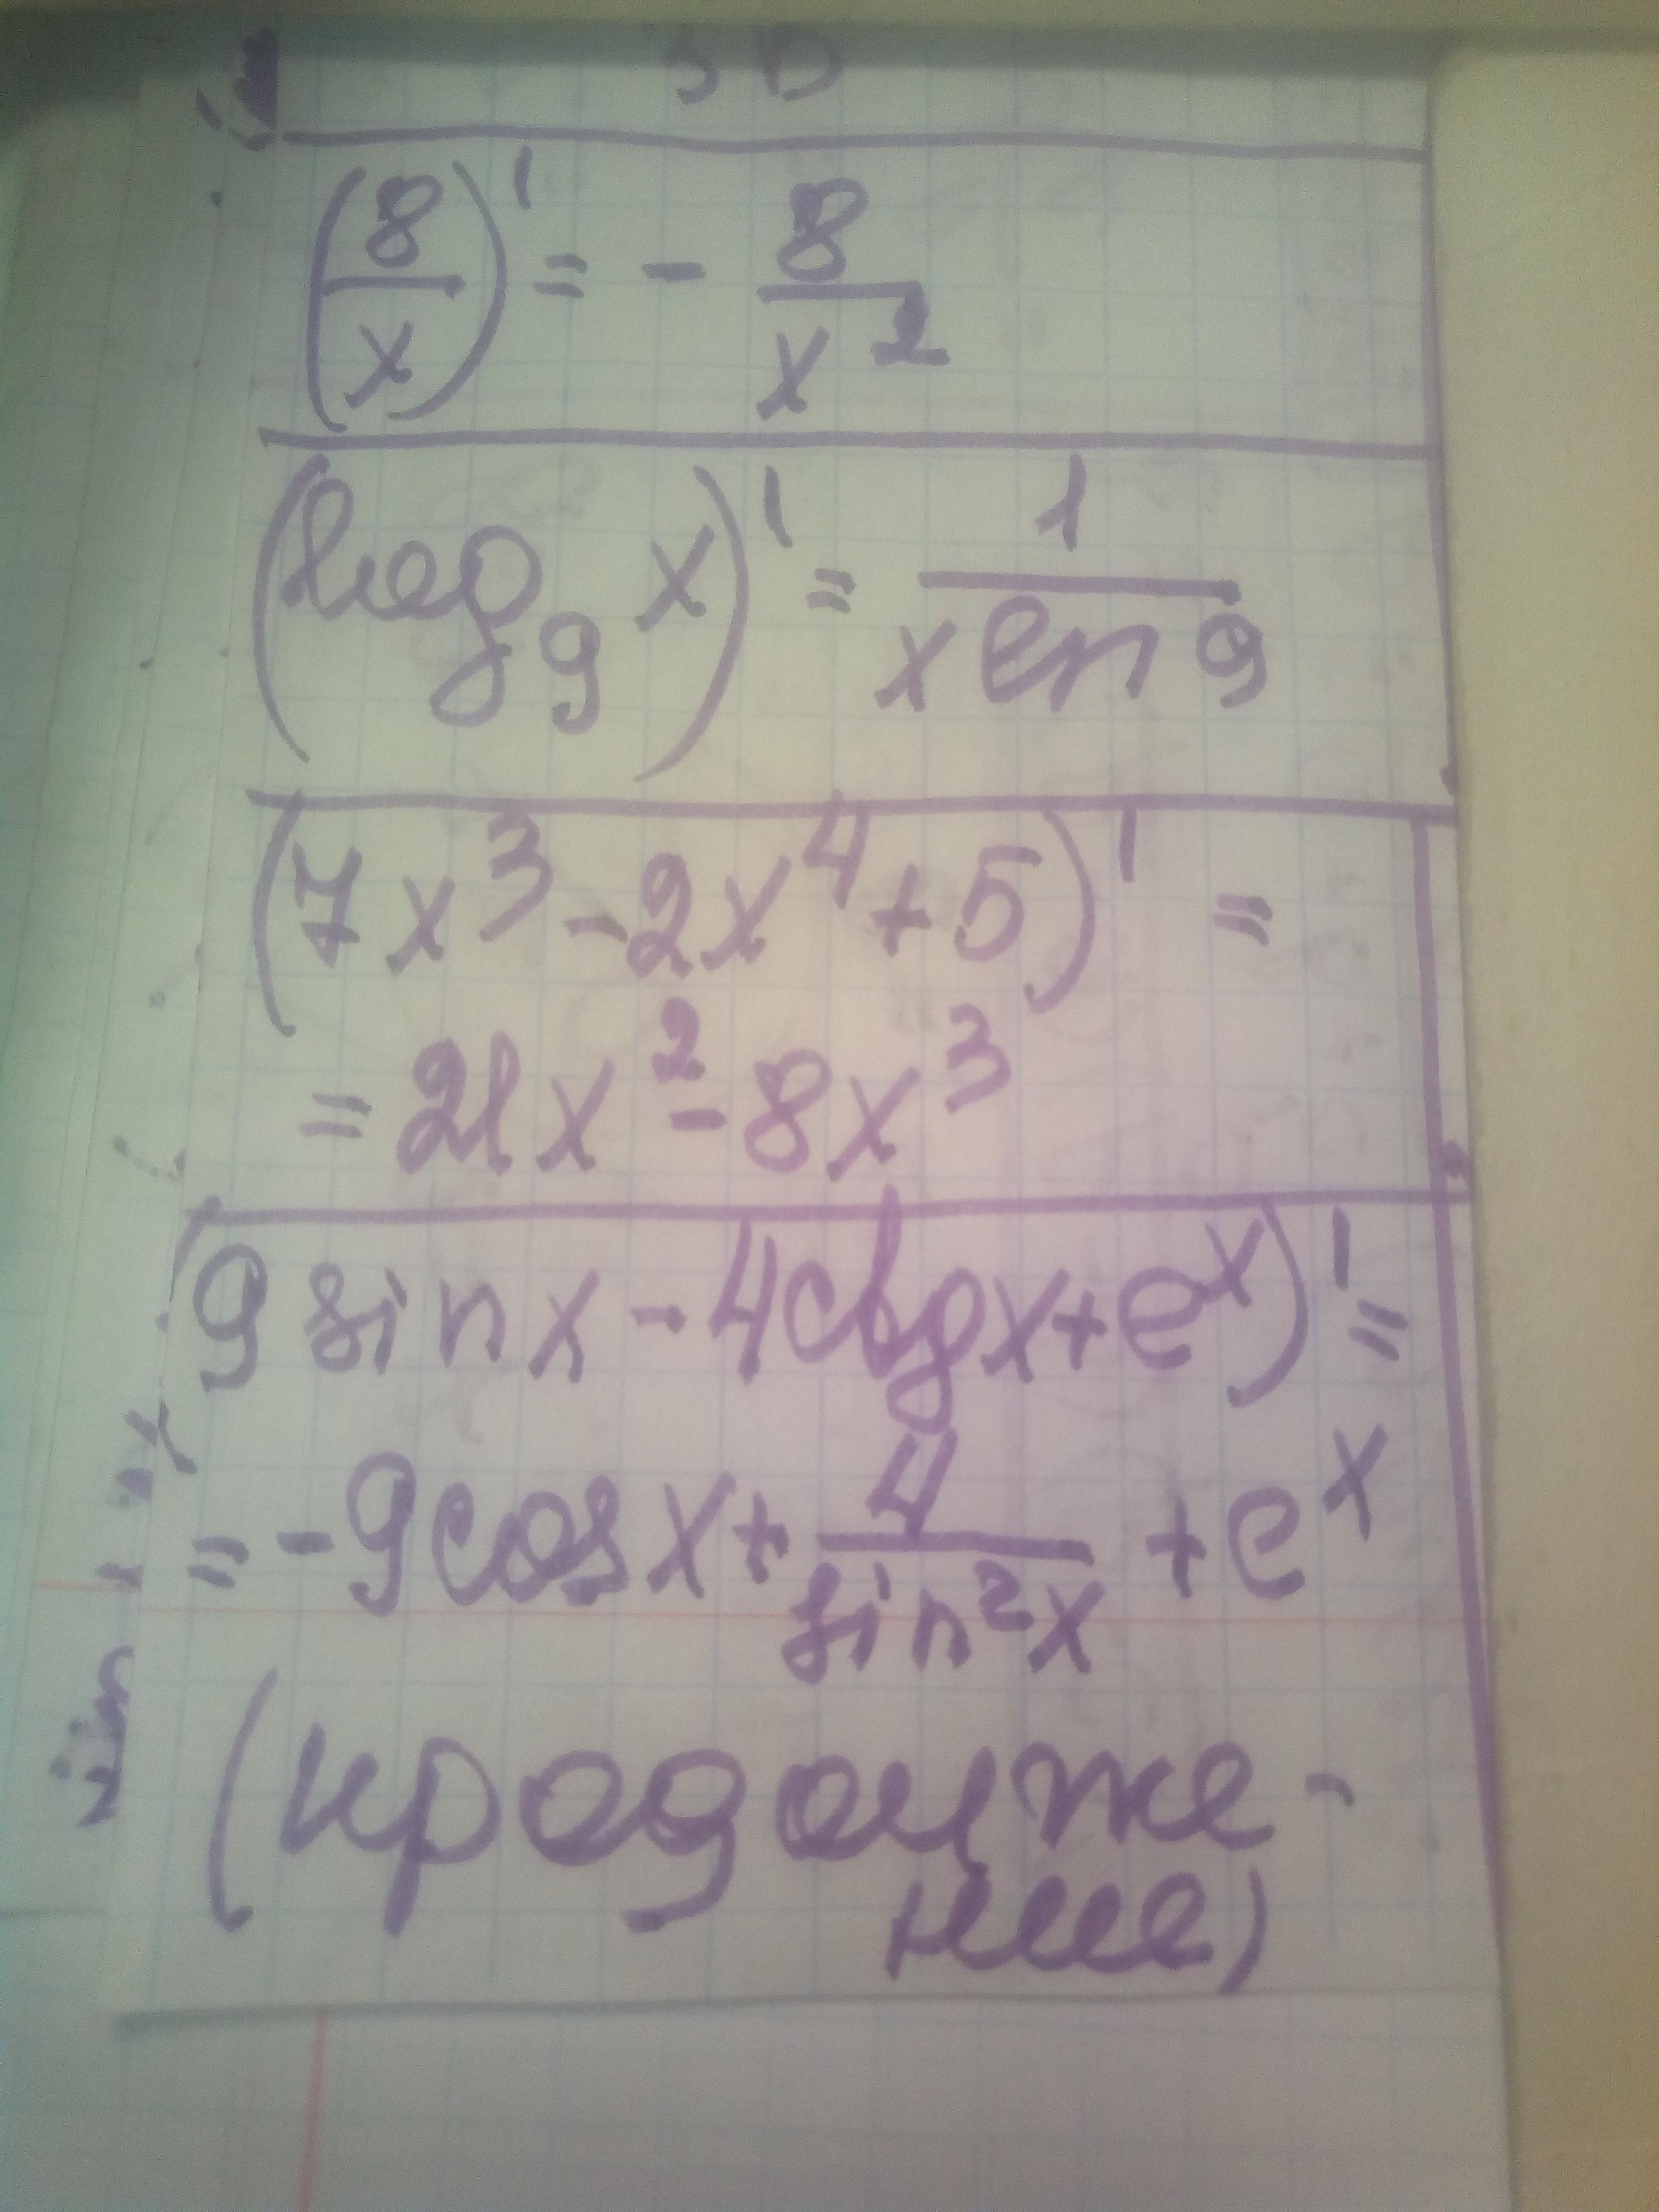 (8/x)' = - 8/x²
(log₉ x)' = 1/(x ln 9)
(7x³ - 2x⁴ + 5)' =
= 21x² - 8x³
(9 sin x - 4ctg x + eˣ)' =
= - 9cos x + 4/(sin²x) + eˣ
(продолже-
ние)